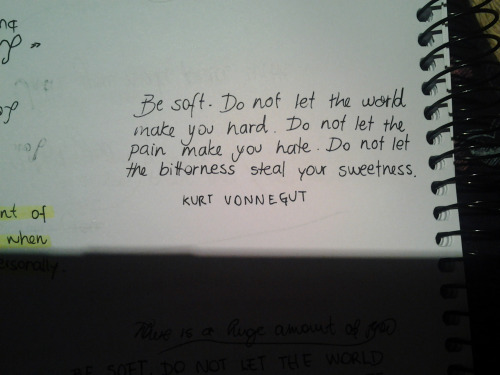 Be soft. Do not let the world
make you hard. Do not let the
pain make you hate. Do not let
the bitterness steal your sweetness.
KURT VONNEGUT
nt of
when
is a huge amount of
BE SOFT. DO NOT LET THE WORLD